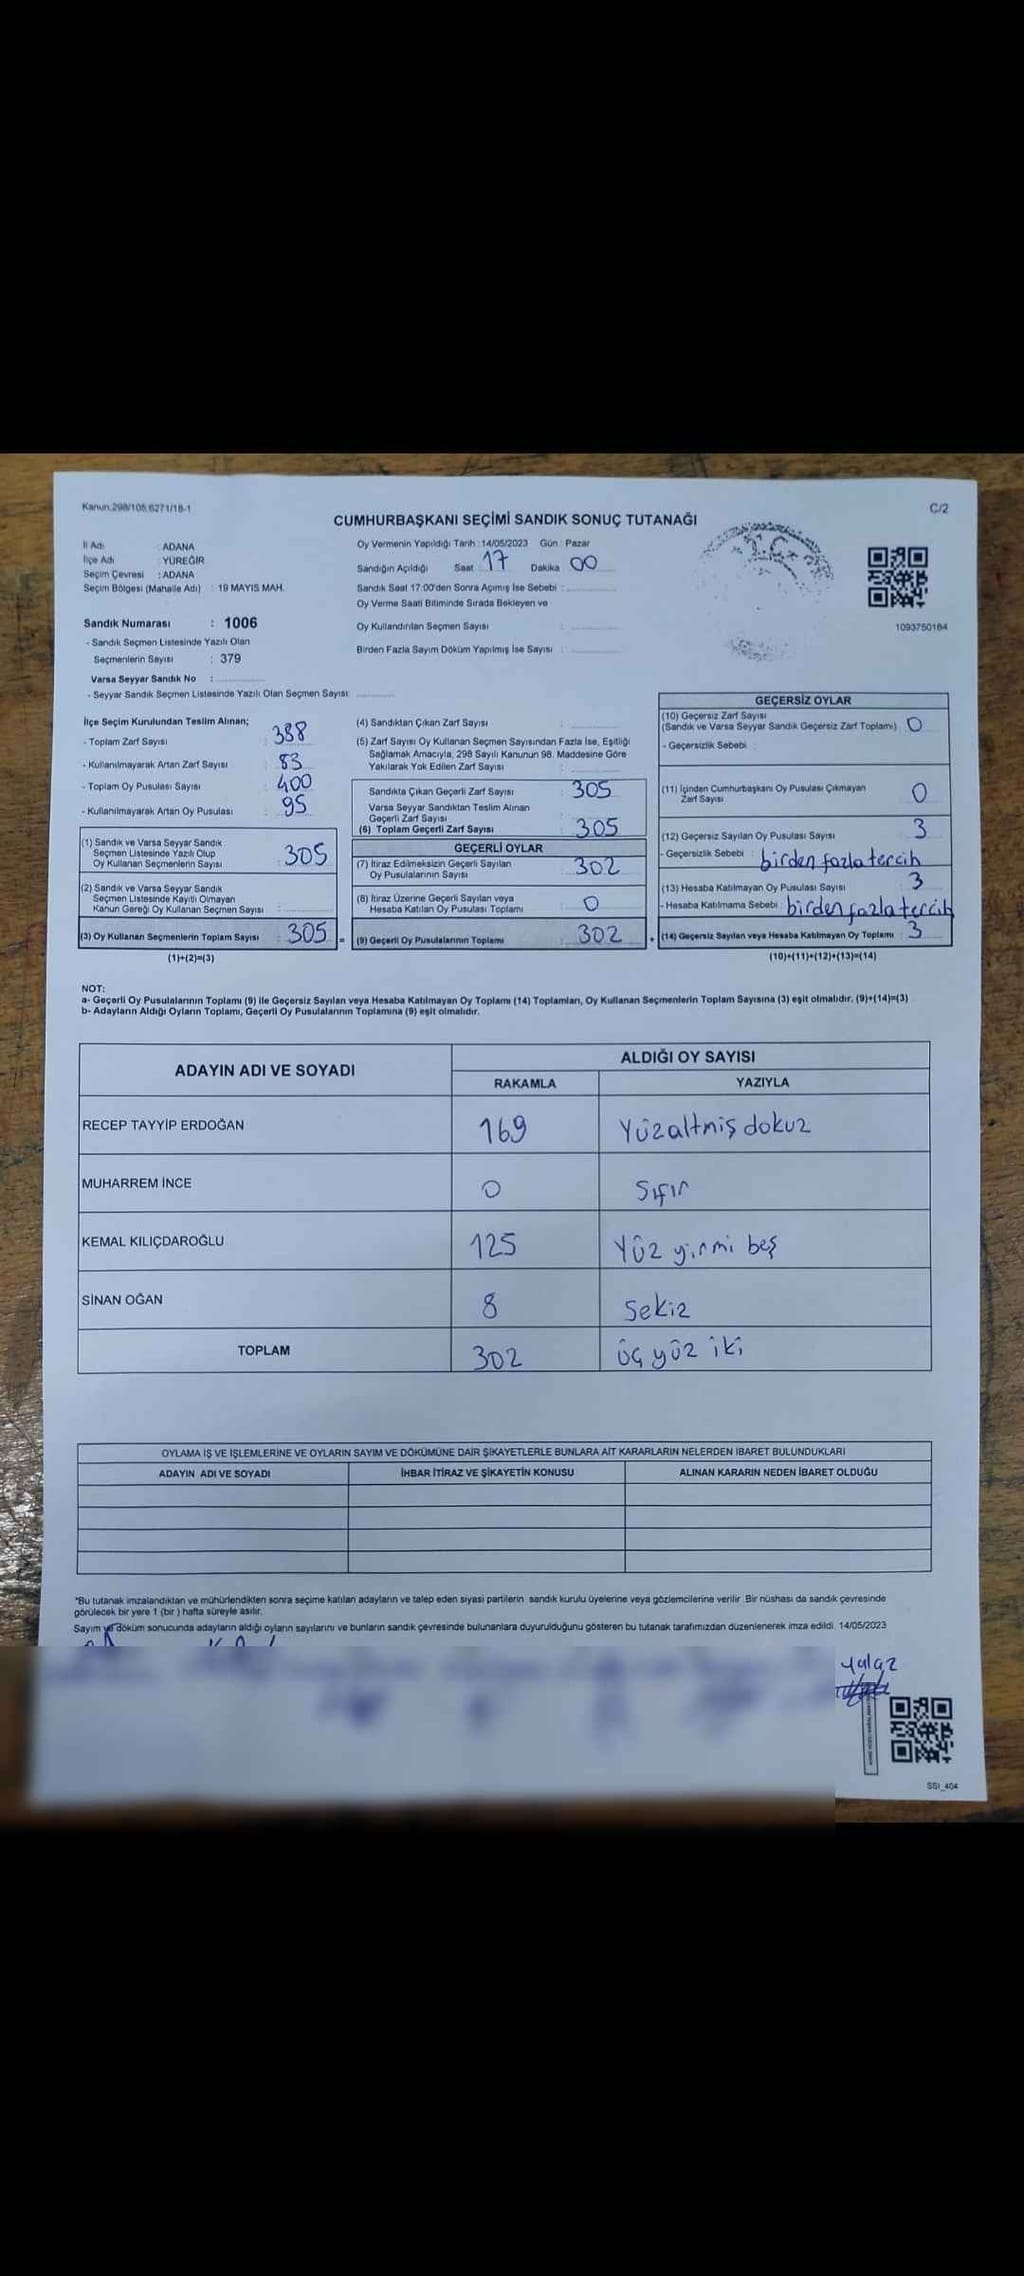 Kanun.298/105,6271/18-1
C/2
CUMHURBAŞKANI SEÇİMİ SANDIK SONUÇ TUTANAĞI
İl Adı : ADANA
İlçe Adı : YÜREĞİR
Seçim Çevresi : ADANA
Seçim Bölgesi (Mahalle Adı) : 19 MAYIS MAH.
Sandık Numarası : 1006
- Sandık Seçmen Listesinde Yazılı Olan
Seçmenlerin Sayısı : 379
Varsa Seyyar Sandık No :
- Seyyar Sandık Seçmen Listesinde Yazılı Olan Seçmen Sayısı:
Oy Vermenin Yapıldığı Tarih : 14/05/2023 Gün : Pazar
Sandığın Açıldığı Saat 17 Dakika 00
Sandık Saat 17.00'den Sonra Açımış İse Sebebi :
Oy Verme Saati Bitiminde Sırada Bekleyen ve
Oy Kullandırılan Seçmen Sayısı :
Birden Fazla Sayım Döküm Yapılmış İse Sayısı :
T.C.
1093750164
İlçe Seçim Kurulundan Teslim Alınan;
- Toplam Zarf Sayısı : 388
- Kullanılmayarak Artan Zarf Sayısı : 83
- Toplam Oy Pusulası Sayısı : 400
- Kullanılmayarak Artan Oy Pusulası : 95
(1) Sandık ve Varsa Seyyar Sandık
Seçmen Listesinde Yazılı Olup
Oy Kullanan Seçmenlerin Sayısı : 305
(2) Sandık ve Varsa Seyyar Sandık
Seçmen Listesinde Kayıtlı Olmayan
Kanun Gereği Oy Kullanan Seçmen Sayısı :
(3) Oy Kullanan Seçmenlerin Toplam Sayısı : 305
(1)+(2)=(3)
(4) Sandıktan Çıkan Zarf Sayısı :
(5) Zarf Sayısı Oy Kullanan Seçmen Sayısından Fazla İse, Eşitliği
Sağlamak Amacıyla, 298 Sayılı Kanunun 98. Maddesine Göre
Yakılarak Yok Edilen Zarf Sayısı :
Sandıkta Çıkan Geçerli Zarf Sayısı : 305
Varsa Seyyar Sandıktan Teslim Alınan
Geçerli Zarf Sayısı :
(6) Toplam Geçerli Zarf Sayısı : 305
GEÇERLİ OYLAR
(7) İtiraz Edilmeksizin Geçerli Sayılan
Oy Pusulalarının Sayısı : 302
(8) İtiraz Üzerine Geçerli Sayılan veya
Hesaba Katılan Oy Pusulası Toplamı : 0
= (9) Geçerli Oy Pusulalarının Toplamı : 302
GEÇERSİZ OYLAR
(10) Geçersiz Zarf Sayısı
(Sandık ve Varsa Seyyar Sandık Geçersiz Zarf Toplamı) : 0
- Geçersizlik Sebebi :
(11) İçinden Cumhurbaşkanı Oy Pusulası Çıkmayan
Zarf Sayısı : 0
(12) Geçersiz Sayılan Oy Pusulası Sayısı : 3
- Geçersizlik Sebebi : birden fazla tercih
(13) Hesaba Katılmayan Oy Pusulası Sayısı : 3
- Hesaba Katılmama Sebebi : birden fazla tercih
+ (14) Geçersiz Sayılan veya Hesaba Katılmayan Oy Toplamı : 3
(10)+(11)+(12)+(13)=(14)
NOT:
a- Geçerli Oy Pusulalarının Toplamı (9) ile Geçersiz Sayılan veya Hesaba Katılmayan Oy Toplamı (14) Toplamları, Oy Kullanan Seçmenlerin Toplam Sayısına (3) eşit olmalıdır. (9)+(14)=(3)
b- Adayların Aldığı Oyların Toplamı, Geçerli Oy Pusulalarının Toplamına (9) eşit olmalıdır.
ADAYIN ADI VE SOYADI ALDIĞI OY SAYISI
RAKAMLA YAZIYLA
RECEP TAYYİP ERDOĞAN 169 Yüzaltmış dokuz
MUHARREM İNCE 0 Sıfır
KEMAL KILIÇDAROĞLU 125 Yüz yirmi beş
SİNAN OĞAN 8 Sekiz
TOPLAM 302 üç yüz iki
OYLAMA İŞ VE İŞLEMLERİNE VE OYLARIN SAYIM VE DÖKÜMÜNE DAİR ŞİKAYETLERLE BUNLARA AİT KARARLARIN NELERDEN İBARET BULUNDUKLARI
ADAYIN ADI VE SOYADI İHBAR İTİRAZ VE ŞİKAYETİN KONUSU ALINAN KARARIN NEDEN İBARET OLDUĞU
*Bu tutanak imzalandıktan ve mühürlendikten sonra seçime katılan adayların ve talep eden siyasi partilerin sandık kurulu üyelerine veya gözlemcilerine verilir. Bir nüshası da sandık çevresinde
görülecek bir yere 1 (bir) hafta süreyle asılır.
Sayım ve döküm sonucunda adayların aldığı oyların sayılarını ve bunların sandık çevresinde bulunanlara duyurulduğunu gösteren bu tutanak tarafımızdan düzenlenerek imza edildi. 14/05/2023
SSI_404